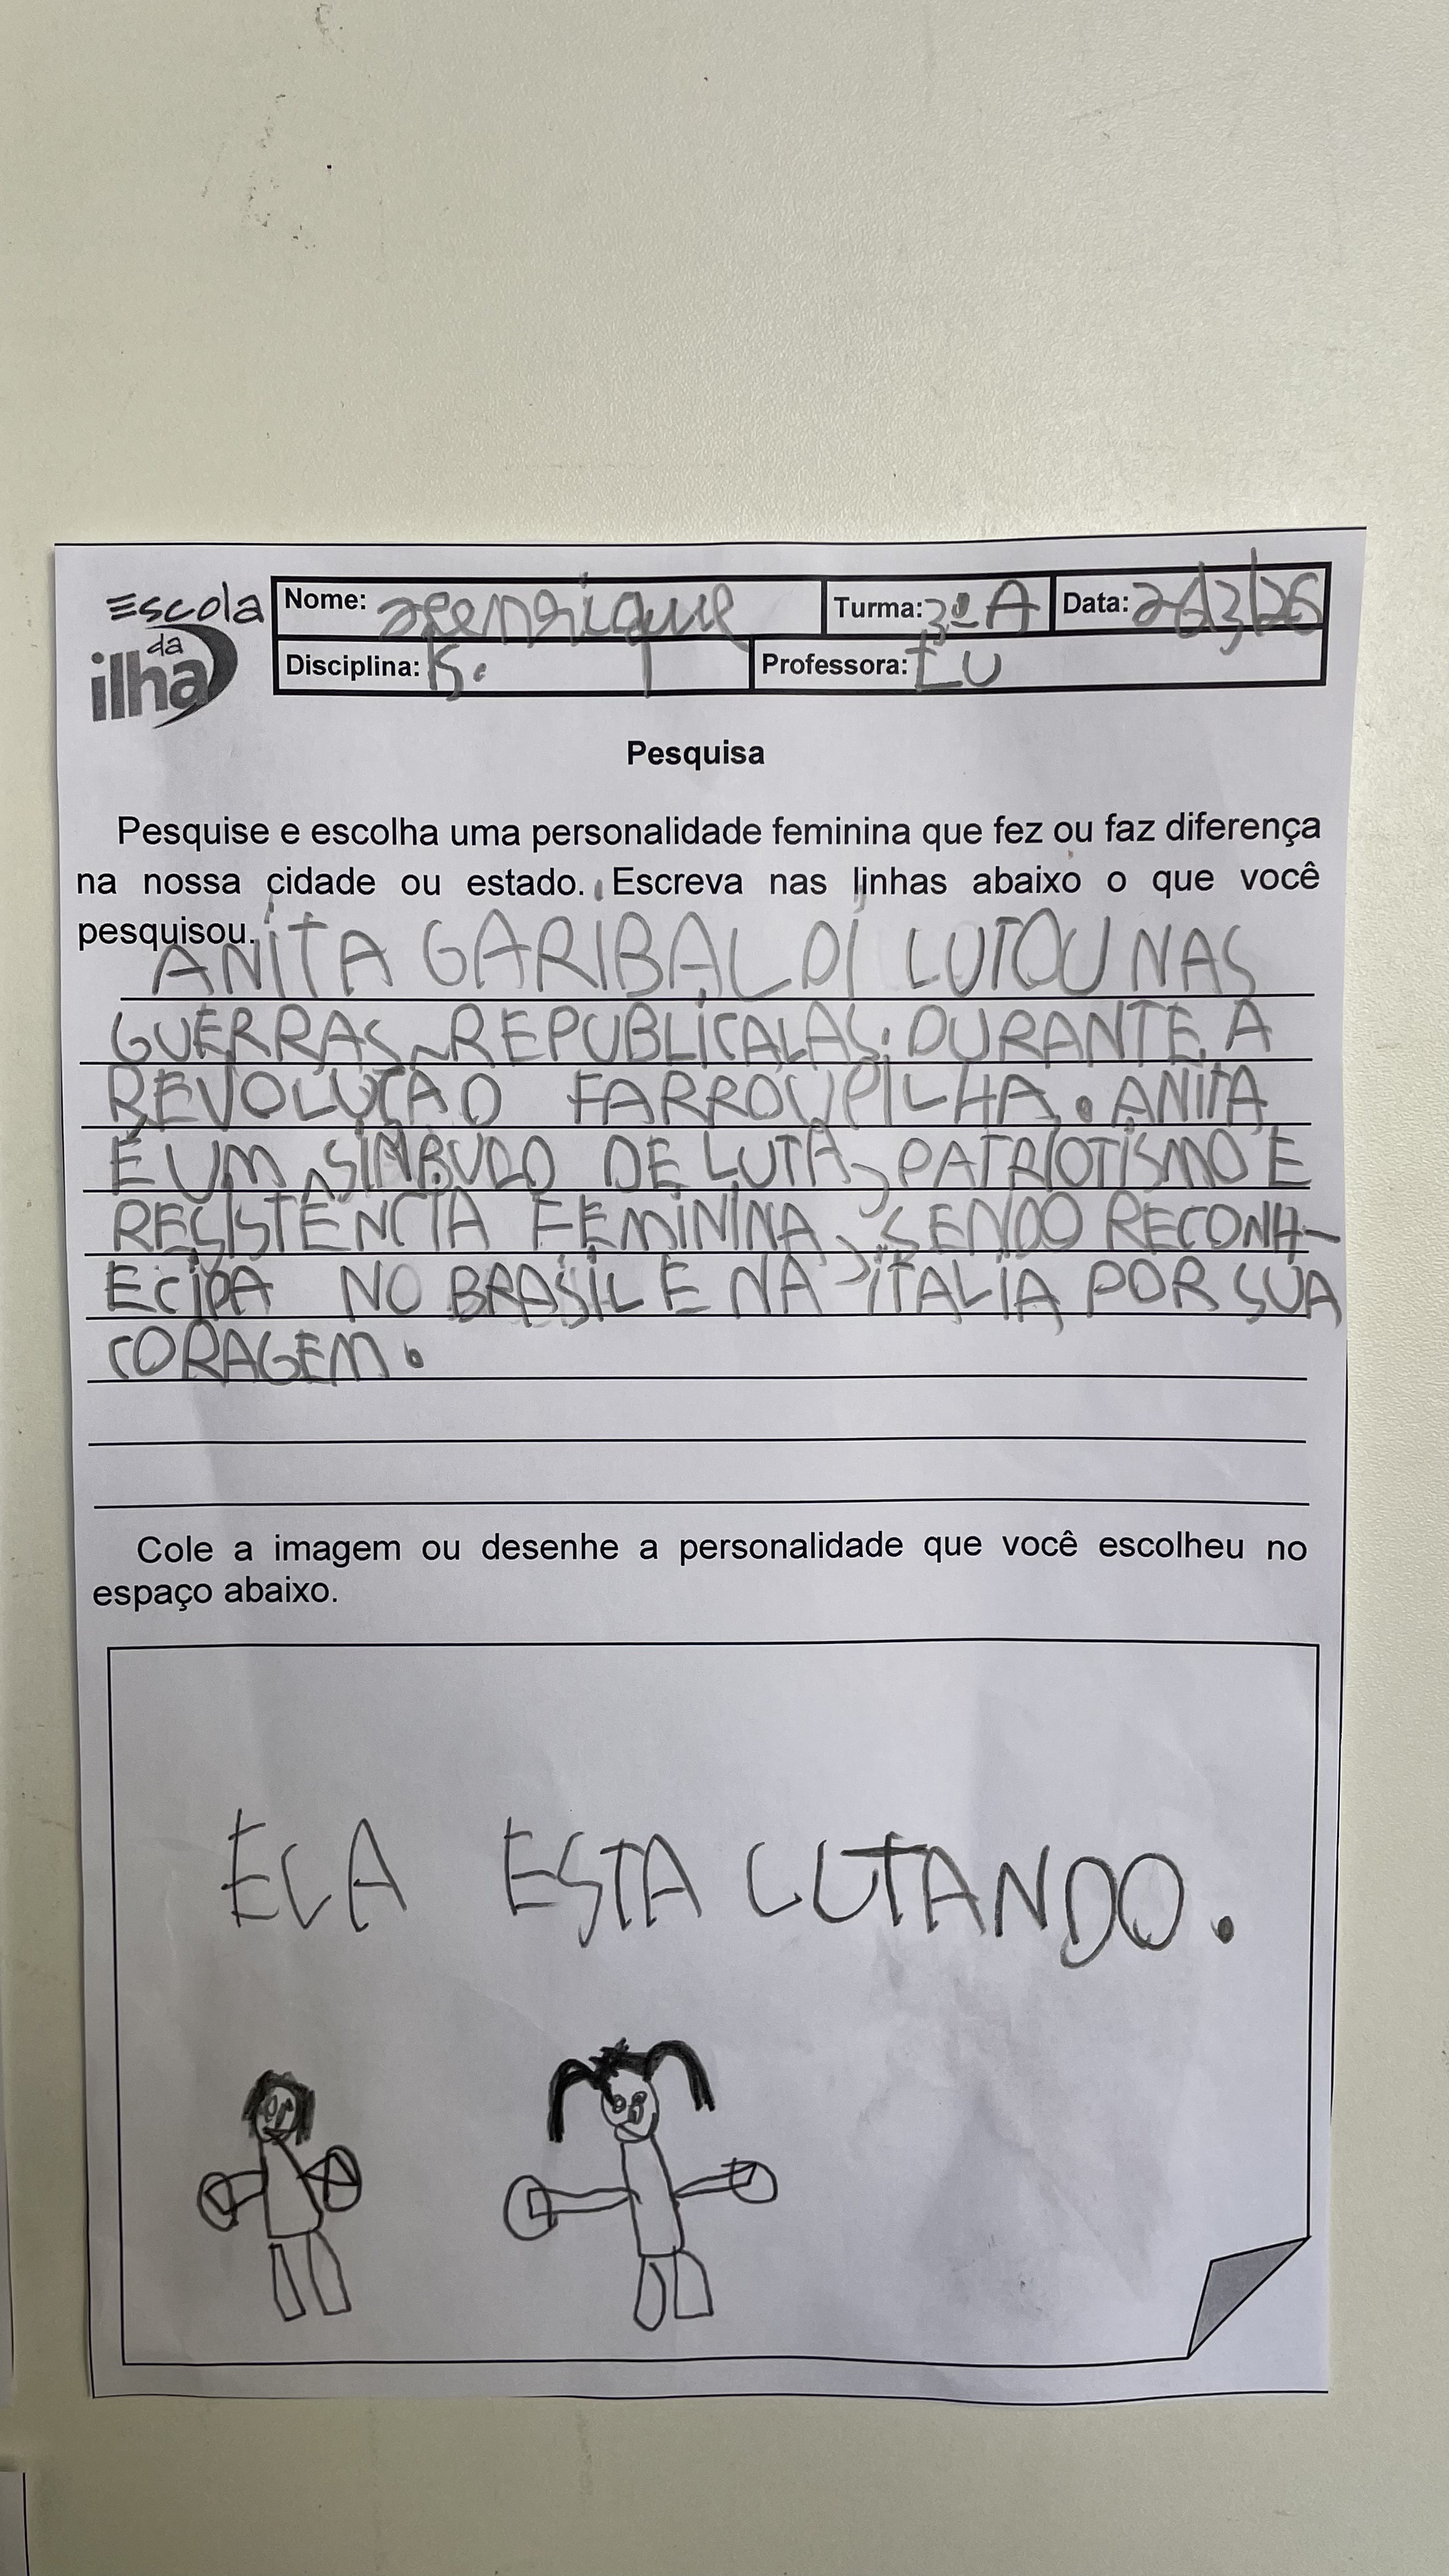 Escola
da
ilha
Nome: Henrique
Turma: 3º A
Data:
Disciplina:
Professora: LU
Pesquisa
Pesquise e escolha uma personalidade feminina que fez ou faz diferença
na nossa cidade ou estado. Escreva nas linhas abaixo o que você
pesquisou.
ANITA GARIBALDI LUTOU NAS
GUERRAS REPUBLICALAS. DURANTE A
REVOLUÇÃO FARROUPILHA. ANITA
É UM SÍMBULO DE LUTA, PATRIOTISMO E
RESISTÊNCIA FEMININA, SENDO RECONH-
ECIDA NO BRASIL E NA ITALIA POR SUA
CORAGEM.
Cole a imagem ou desenhe a personalidade que você escolheu no
espaço abaixo.
ELA ESTA LUTANDO.